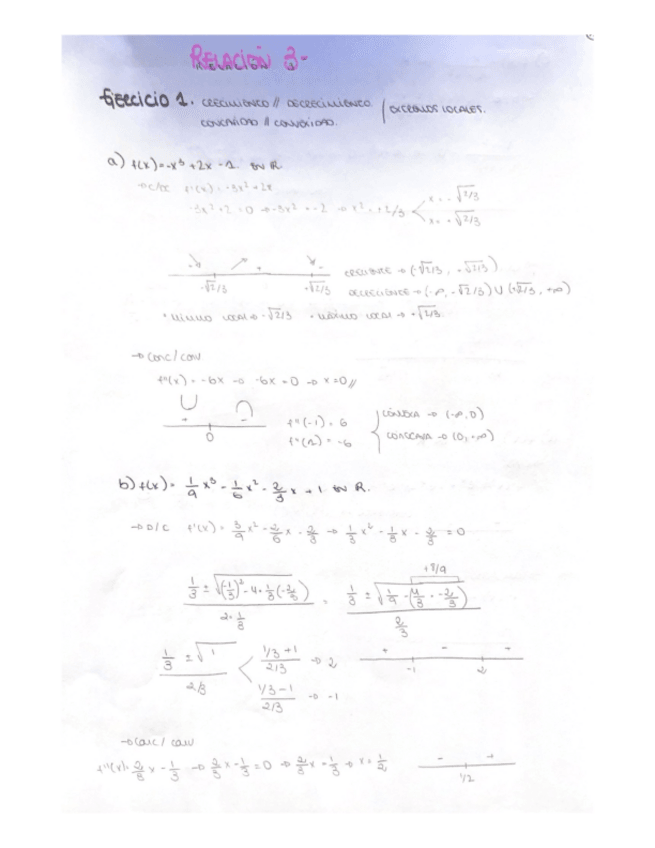 RELACIÓN 3-
Ejercicio 1. CRECIMIENTO // DECRECIMIENTO / EXTREMOS LOCALES.
CONCAVIDAD // CONVEXIDAD.
a) f(x) = -x³ + 2x - 1. EN R.
f'(x) = -3x² + 2
-3x² + 2 = 0 → -3x² = -2 → x² = +2/3 x = -√2/3
x = +√2/3
+
-√2/3 √2/3
CRECIENTE → (-√2/3, +√2/3)
DECRECIENTE → (-∞, -√2/3) U (+√2/3, +∞)
• MÍNIMO LOCAL → -√2/3 • MÁXIMO LOCAL → +√2/3
→ CONC/CONV
f''(x) = -6x → -6x = 0 → x = 0 //
+ -
0
f''(-1) = 6
f''(1) = -6
CONVEXA → (-∞, 0)
CONCAVA → (0, +∞)
b) f(x) = 1/9 x³ - 1/6 x² - 2/3 x + 1 EN R.
→ D/C f'(x) = 3/9 x² - 2/6 x - 2/3 → 1/3 x² - 1/3 x - 2/3 = 0
+8/9
1/3 ± √((-1/3)² - 4 · 1/3 (-2/3)) / 2 · 1/3 = 1/3 ± √(1/9 - (4/3 · -2/3)) / 2/3
1/3 ± √1 / 2/3
1/3 + 1 / 2/3 → 2
1/3 - 1 / 2/3 → -1
+ - +
-1 2
→ CONC/CONV
f''(x) = 2/3 x - 1/3 → 2/3 x - 1/3 = 0 → 2/3 x = 1/3 → x = 1/2
- +
1/2